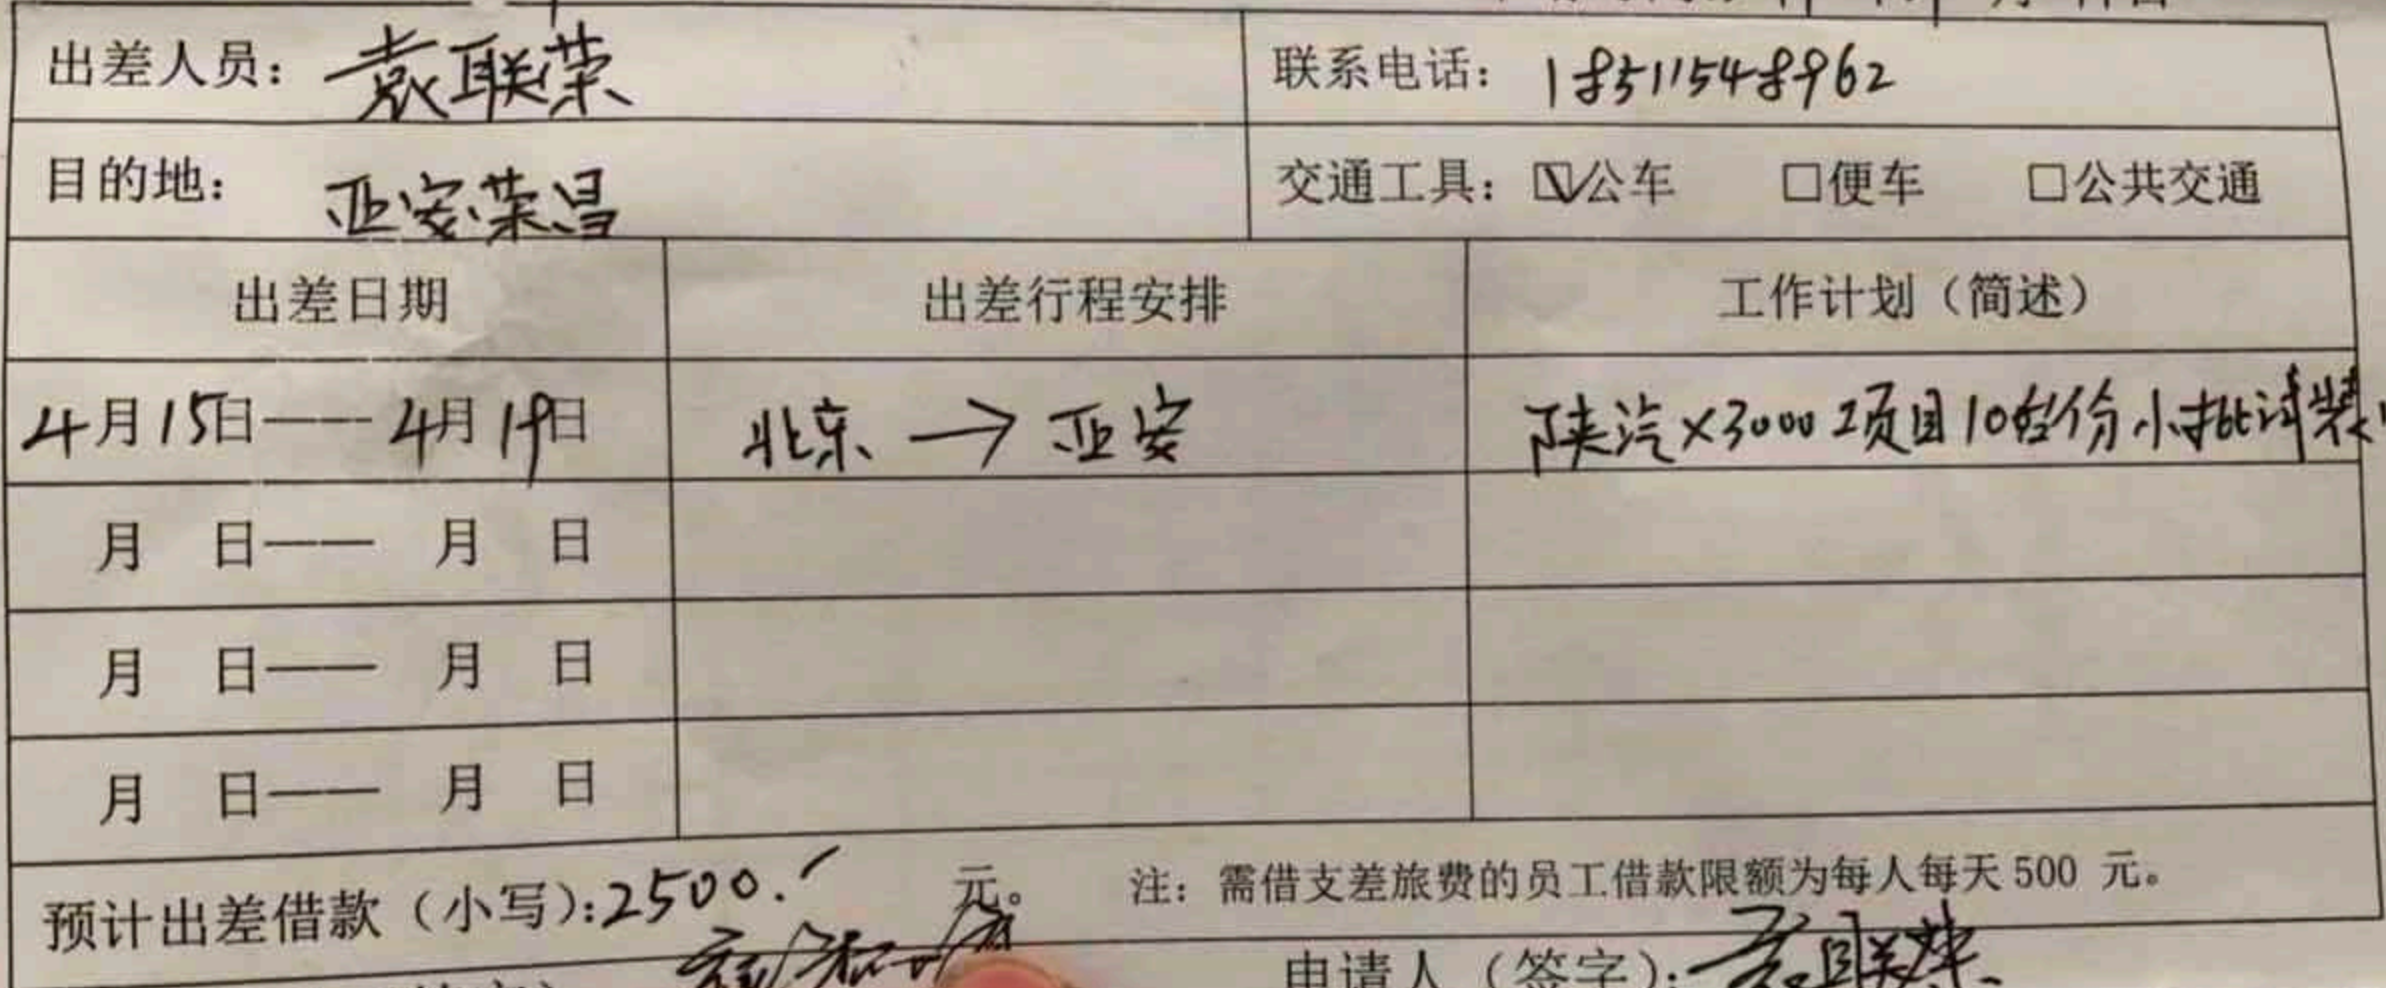 出差人员：袁联荣 联系电话：18511548962
目的地：亚安荣昌 交通工具：☑公车 □便车 □公共交通
出差日期 出差行程安排 工作计划（简述）
4月15日——4月19日 北京→亚安 陕汽X3000项目10台份小批试装
月 日—— 月 日
月 日—— 月 日
月 日—— 月 日
预计出差借款（小写）：2500. 元。 注：需借支差旅费的员工借款限额为每人每天500 元。
申请人（签字）：袁联荣